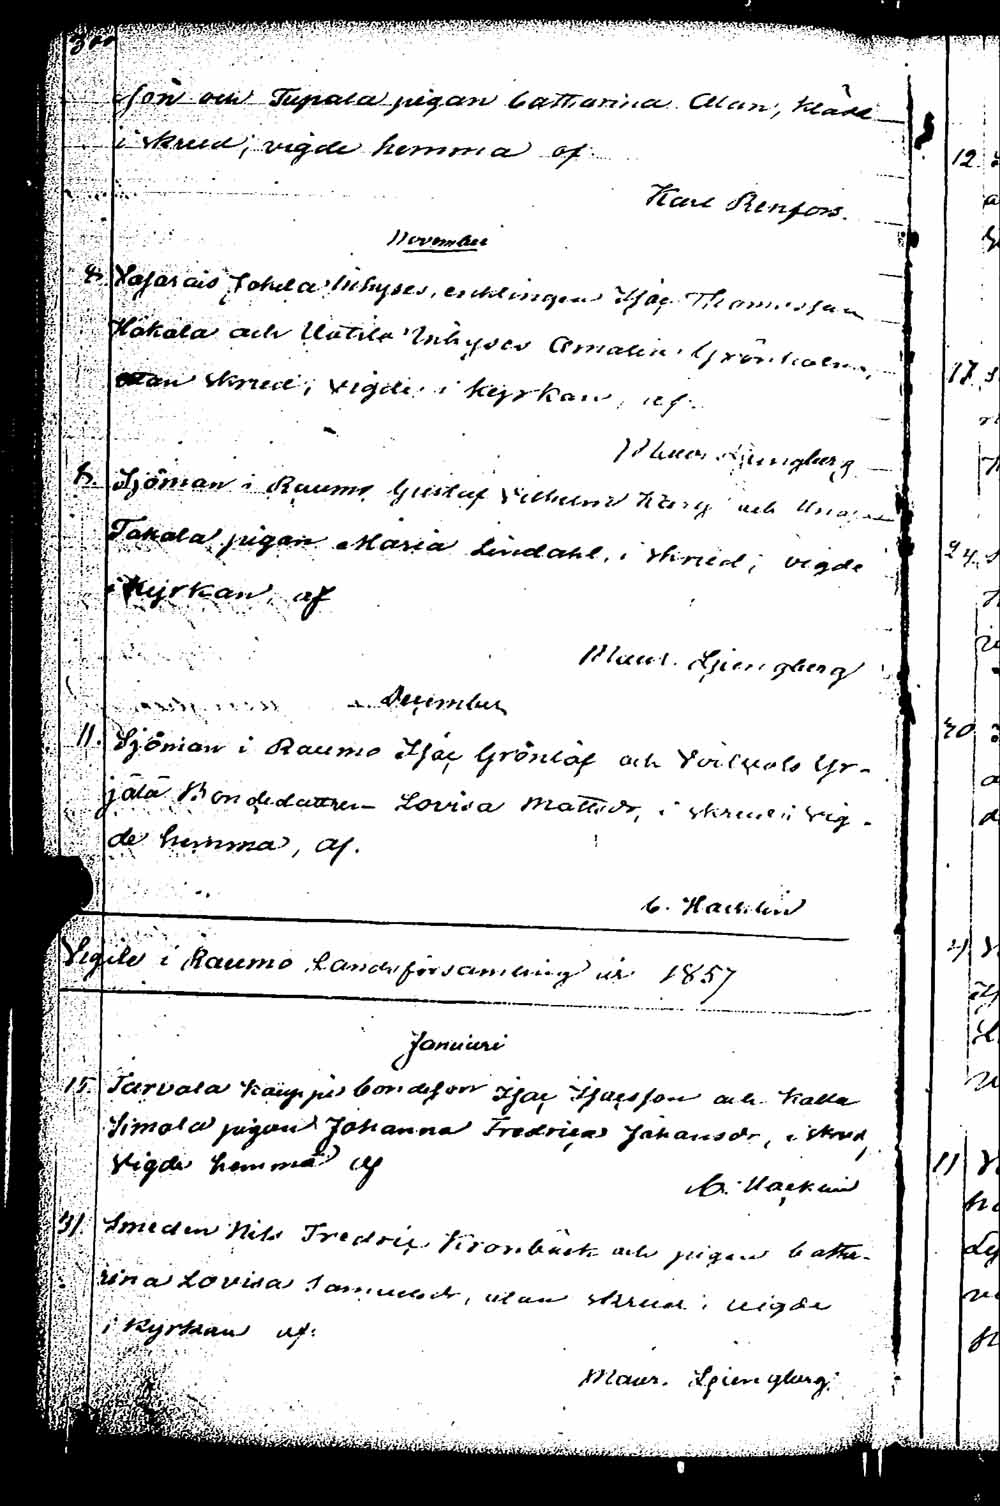 300
son och Tupala pigan Catharina Alan, klädd
i skrud; vigde hemma af
Karl Renfors.
November
8. Jokela Inhyses, enklingen Isaç Thomasson
Hakala och Uotila Inhyses Amalia Grönholm,
utan skrud; vigde i kyrkan, af.
Maur. Ljungberg
8. Sjöman i Raumo Gustaf Vilhelm och
Takala pigan Maria Lindahl, i skrud; vigde
i kyrkan, af
Maur. Ljungberg
December
11. Sjöman i Raumo Isaç Grönlöf och Yr-
jälä Bondedottren Lovisa Mattsdr, i skrud; vig-
de hemma, af.
C. Hacklin
Vigde i Raumo Landsförsamling år 1857
Januari
15. Tarvola Kauppi bondeson Isaç Isaçsson och Kalla
Simola pigan Johanna Fredriça Johansdr, i skrud,
vigde hemma af
C. Haçklin
31. Smeden Nils Fredriç Kronbäck och pigan Catha-
rina Lovisa Samuelsdr, utan skrud; vigde
i kyrkan af:
Maur. Ljungberg.
12
17
24
30
4
11